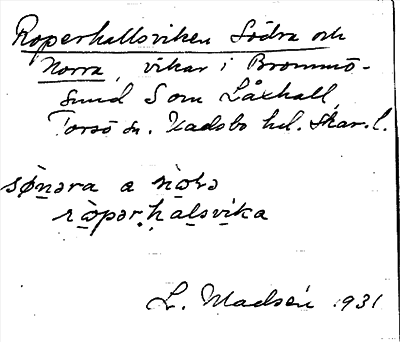 Roperhallsviken Södra och
Norra, vikar i Brommö-
sund S om Låxhall,
Torsö sn. Vadsbo hd. Skar. l.
sø̀nəra a nò̱rə
rò̱pər.ha̱lsvi̱ka
L. Madsén 1931